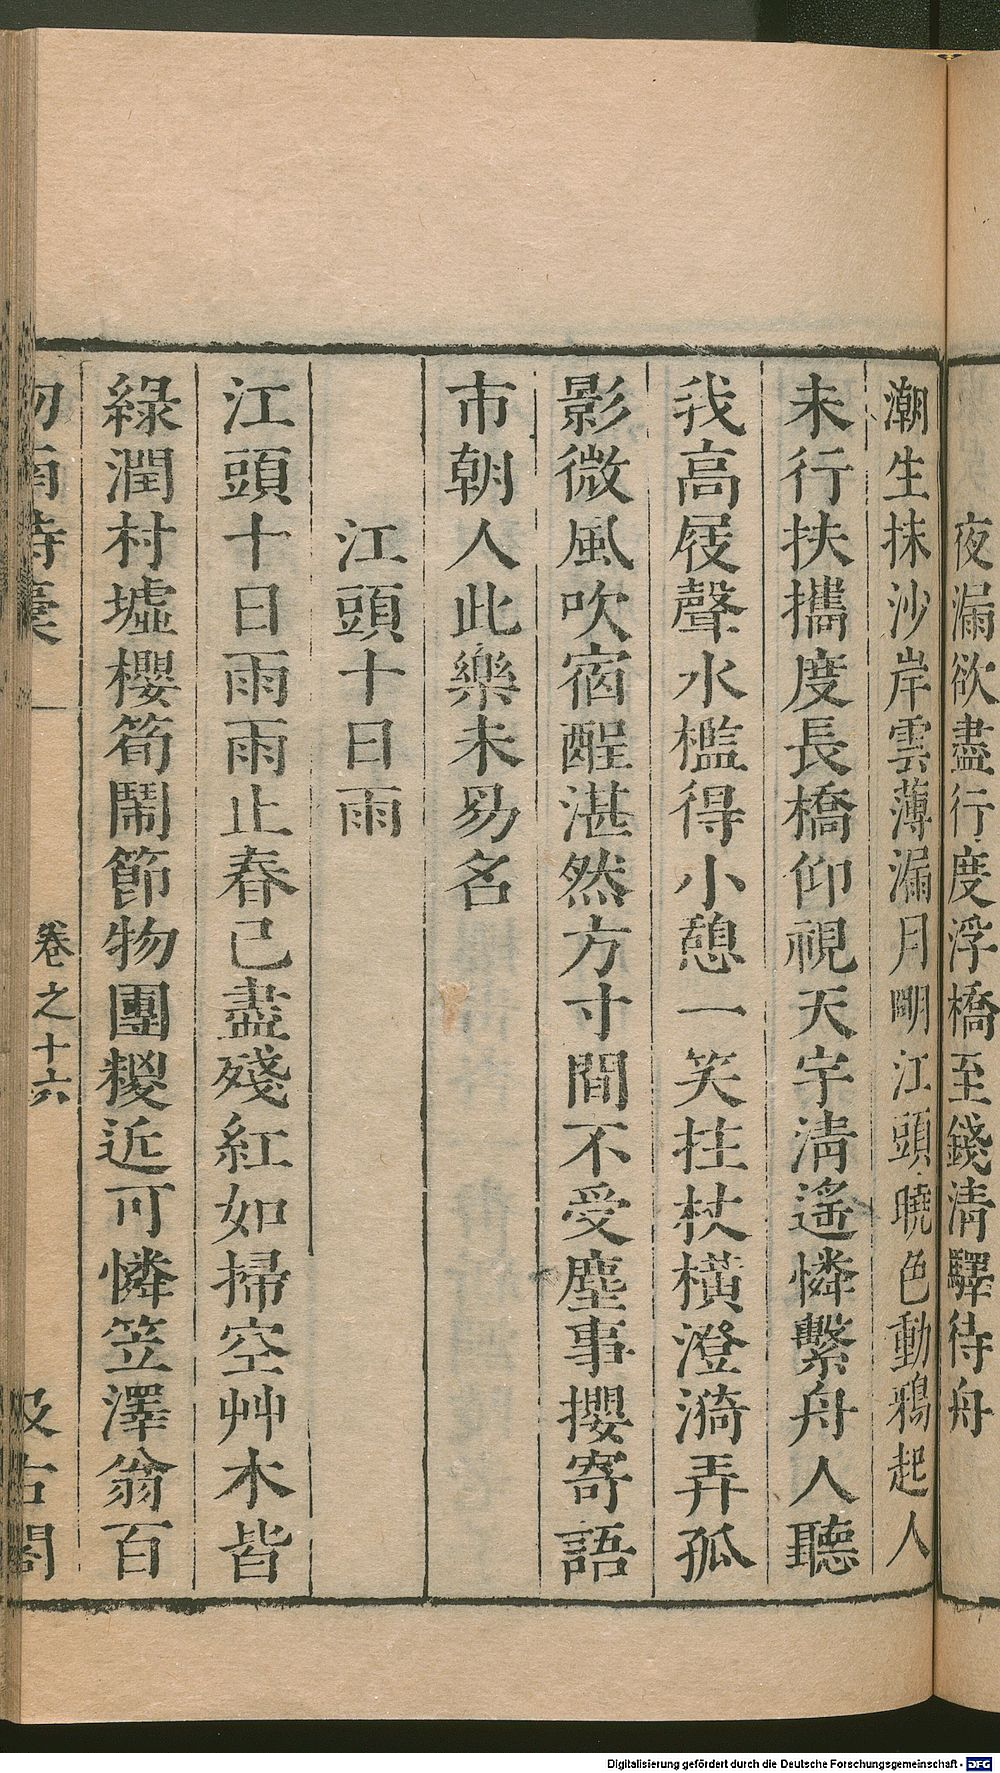 夜漏欲盡行度浮橋至錢清驛待舟
潮生抹沙岸雲薄漏月明江頭曉色動鴉起人
未行扶攜度長橋仰視天宇淸遙憐繫舟人聽
我高屐聲水檻得小憩一笑拄杖橫澄漪弄孤
影微風吹宿酲湛然方寸間不受塵事攖寄語
市朝人此樂未易名
江頭十日雨
江頭十日雨雨止春已盡殘紅如掃空艸木皆
綠潤村墟櫻筍鬧節物團糉近可憐笠澤翁百
劒南詩稾
卷之十六
汲古閣
Digitalisierung gefördert durch die Deutsche Forschungsgemeinschaft - DFG